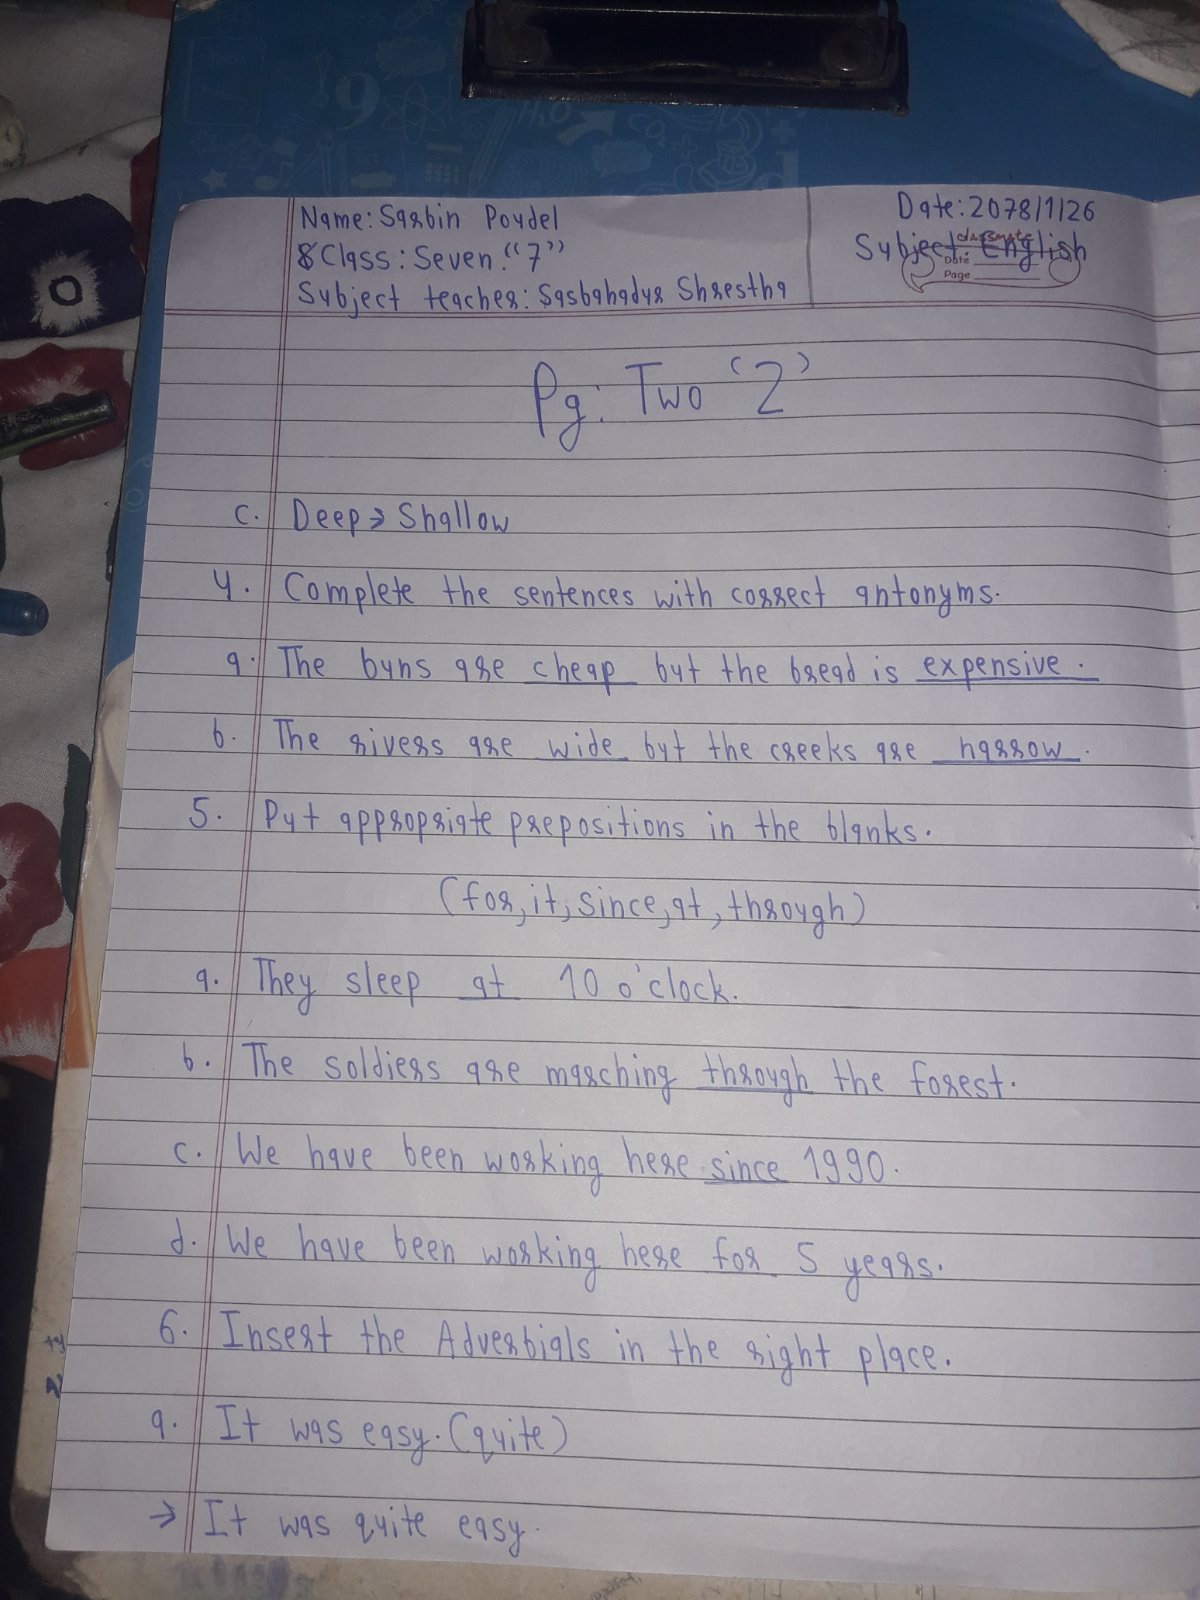 Name: Sarbin Poudel
Date: 2078/1/26
& Class: Seven "7"
Subject: English
classmate
Date
Page
Subject teacher: Sasbahadur Shrestha
Pg: Two '2'
c. Deep → Shallow
4. Complete the sentences with correct antonyms.
a. The buns are cheap but the bread is expensive.
b. The rivers are wide but the creeks are narrow.
5. Put appropriate prepositions in the blanks.
(for, it, since, at, through)
a. They sleep at 10 o'clock.
b. The soldiers are marching through the forest.
c. We have been working here since 1990.
d. We have been working here for 5 years.
6. Insert the Adverbials in the right place.
a. It was easy. (quite)
→ It was quite easy.